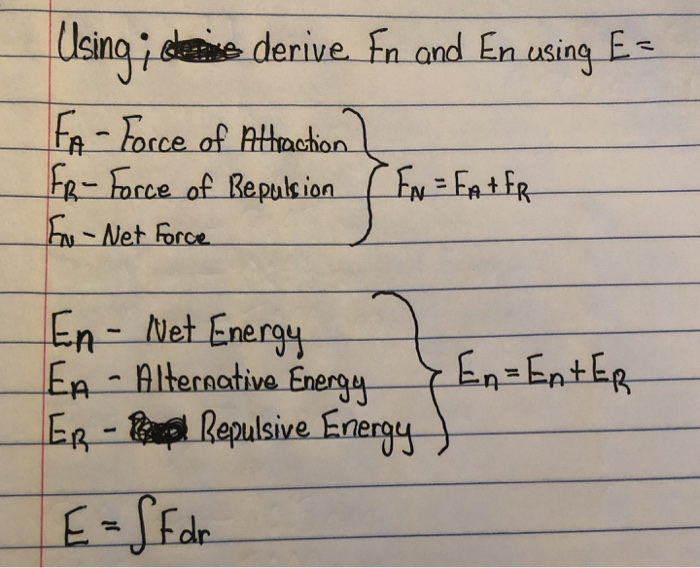 Using; derive Fn and En using E=
FA - Force of Attraction
FR - Force of Repulsion
FN = FA + FR
FN - Net Force
En - Net Energy
EA - Alternative Energy
En = En + ER
ER - Repulsive Energy
E = ∫Fdr